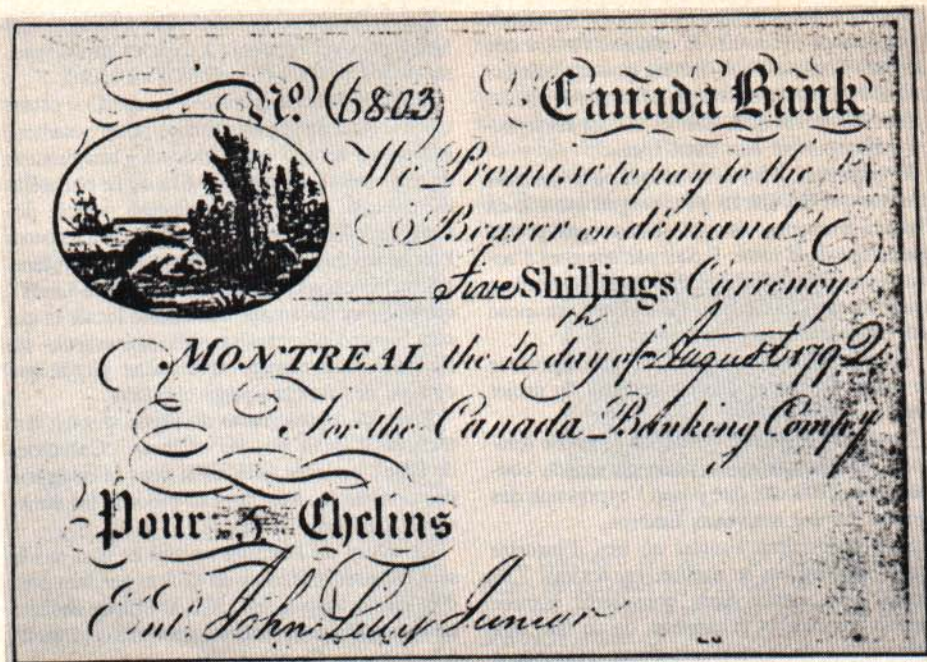 No. 6803 Canada Bank
We Promise to pay to the
Bearer on demand
Five Shillings Currency
MONTREAL the 10th day of August 1792
For the Canada Banking Compy
Pour 5 Chelins
Ent. John Lilly Junior